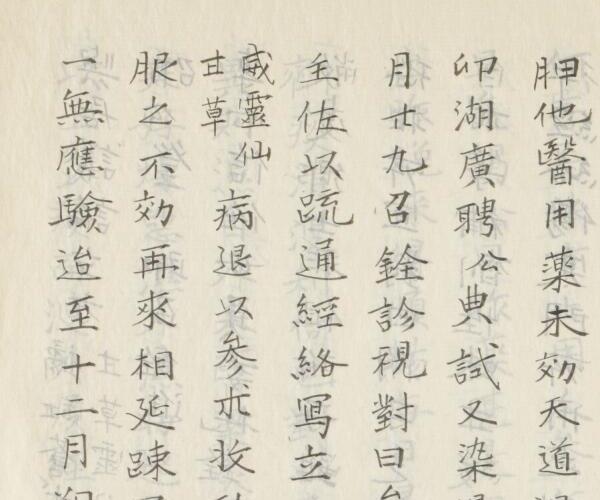 胛他醫用藥未効天道
卯湖廣聘公典試又染
月廿九召銓診視對曰
主佐以疏通經絡寫立
威靈仙
甘草
病退以參朮收
服之不効再來相延踈
一無應驗迨至十二月